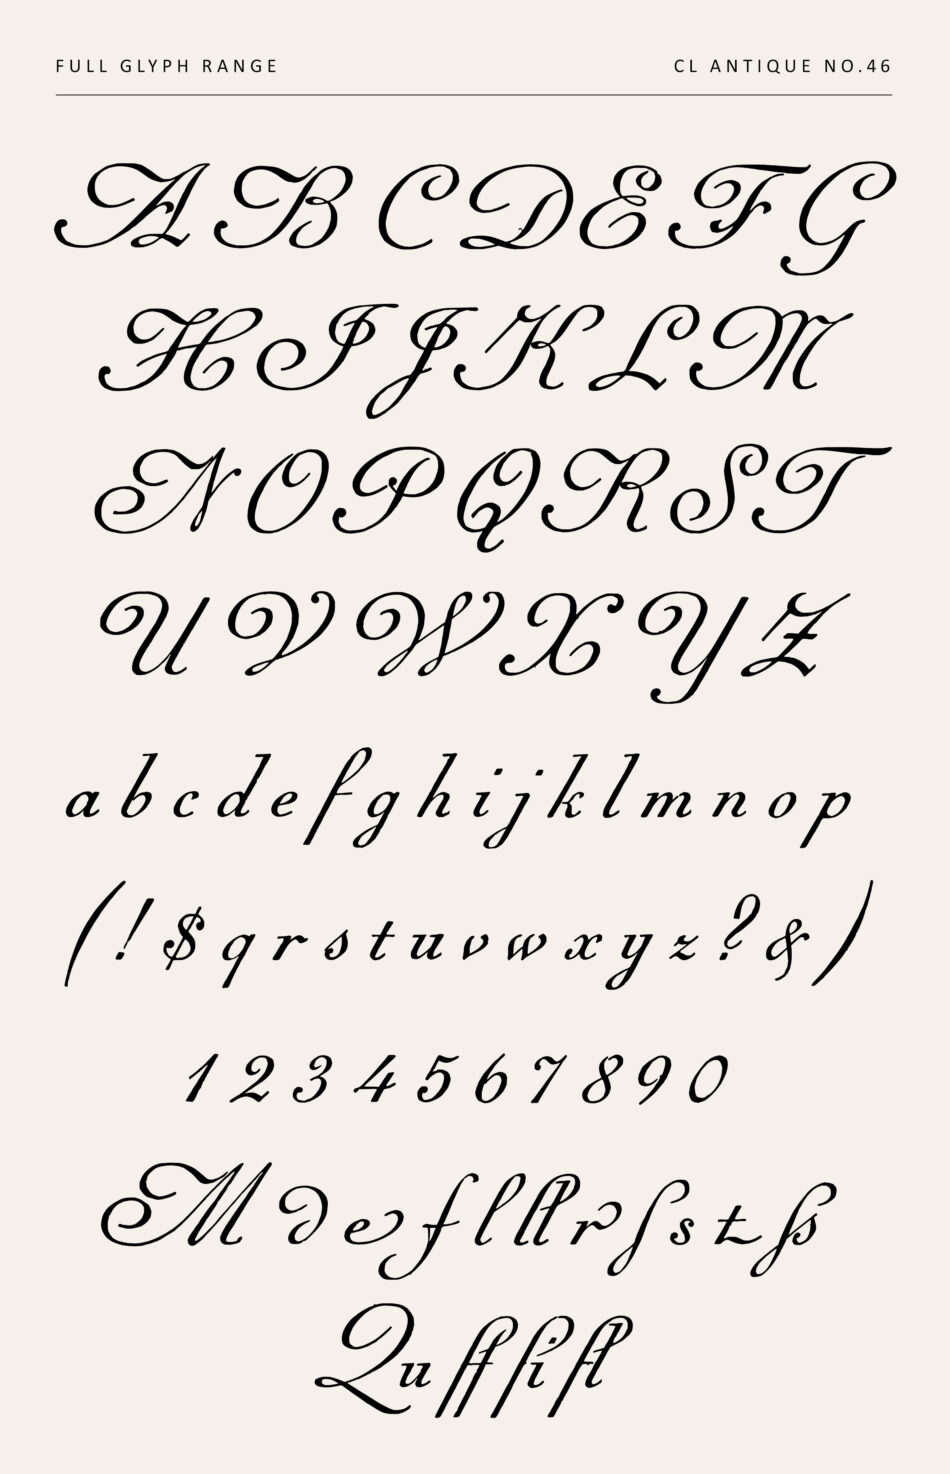 FULL GLYPH RANGE CL ANTIQUE NO.46
A B C D E F G
H I J K L M
N O P Q R S T
U V W X Y Z
a b c d e f g h i j k l m n o p
( ! $ q r s t u v w x y z ? & )
1 2 3 4 5 6 7 8 9 0
M d e f l ll r ſ s t ſs
Qu ff fi fl